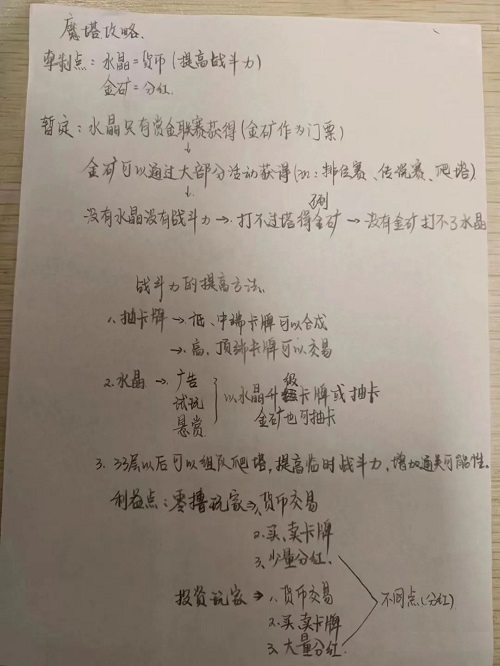 魔塔攻略.
牵制点：水晶=货币(提高战斗力)
金矿=分红.
暂定：水晶只有赏金联赛获得(金矿作为门票)
↓
金矿可以通过大部分活动获得(如：排位赛、传说赛、爬塔)
↓
没有水晶没有战斗力→打不过塔得不到金矿→没有金矿打不了水晶
战斗力的提高方法.
1.抽卡牌→低、中端卡牌可以合成
→高、顶端卡牌可以交易
2.水晶→广告
试玩
悬赏.
以水晶升级卡牌或抽卡
金矿也可抽卡
3.33层以后可以组队爬塔,提高临时战斗力,增加通关可能性.
利益点：零撸玩家→1.货币交易
2.买、卖卡牌
3.少量分红.
投资玩家→1.货币交易
2.买、卖卡牌
3.大量分红.
不同点(分红)